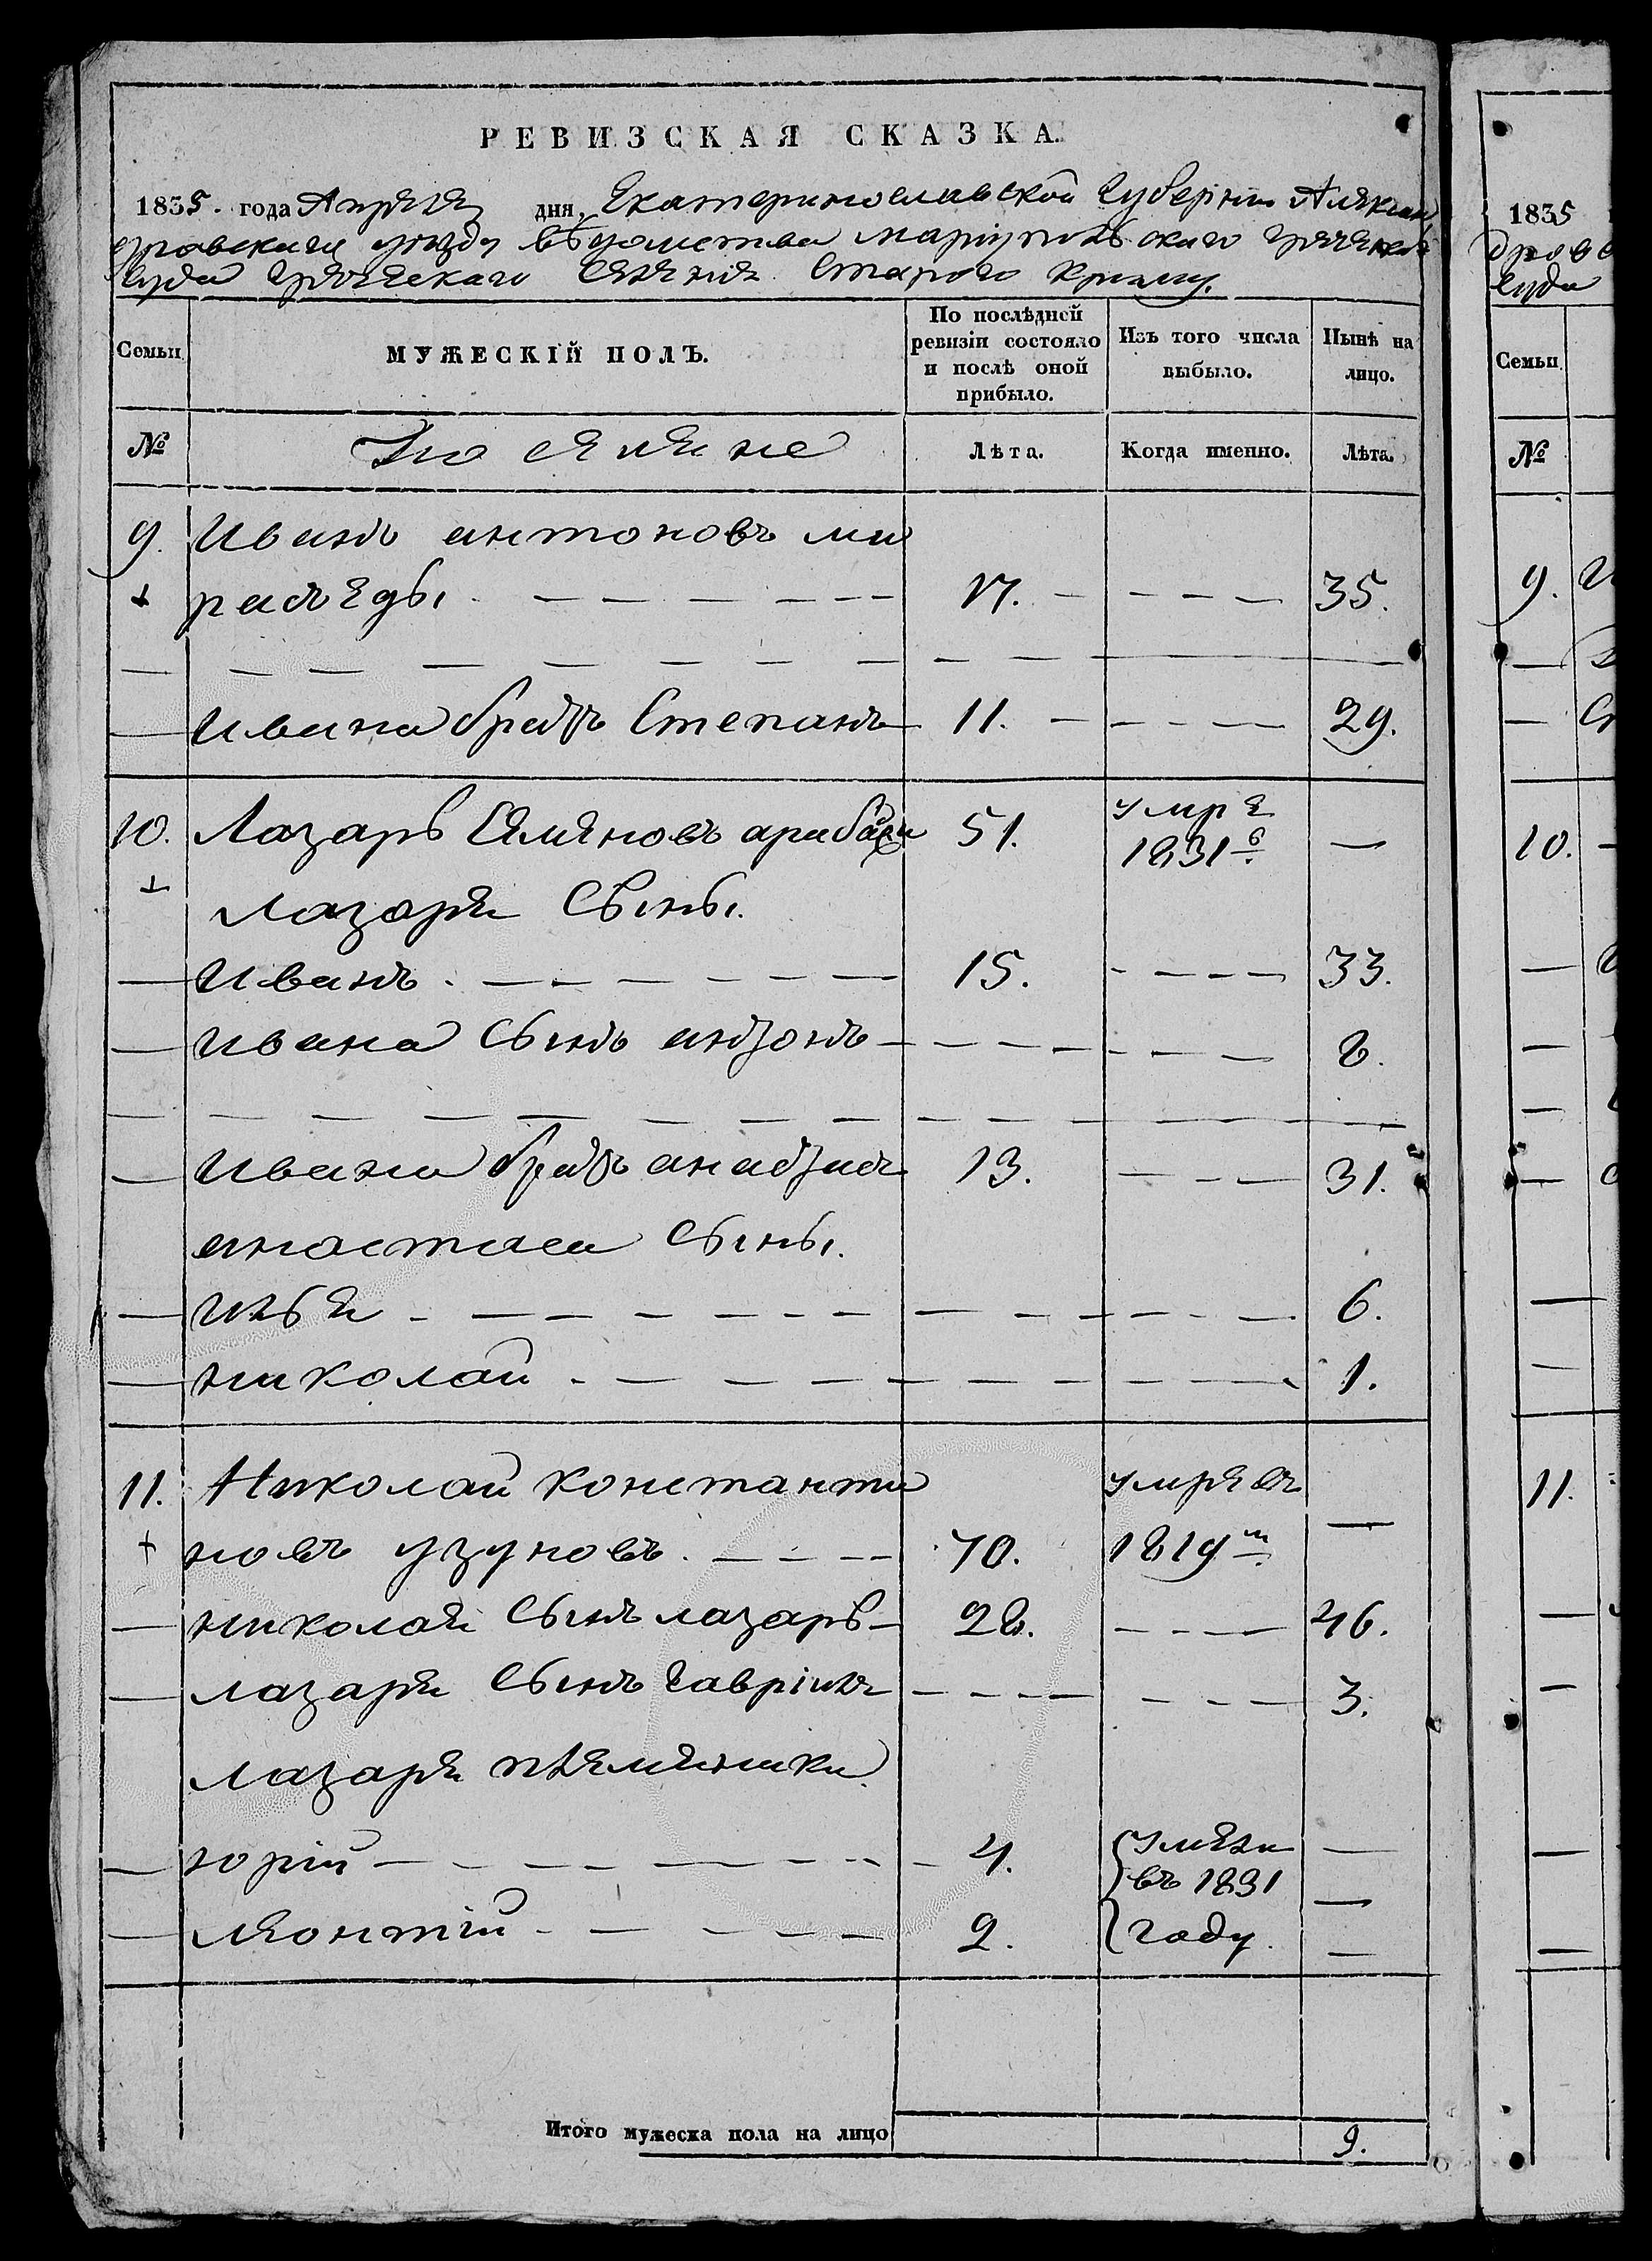 РЕВИЗСКАЯ СКАЗКА.
1835. года Апреля дня, Екатеринославской Губернии Алексан
дровскаго уезду ведомства мариупольскаго греческаго
Суда Греческаго Селения Старого Крыму.
Семьи. МУЖЕСКІЙ ПОЛЪ. По послѣдней ревизіи состояло и послѣ оной прибыло. Изъ того числа выбыло. Нынѣ на лицо.
№ Поселяне Лѣта. Когда именно. Лѣта.
9. Иванъ антоновъ ми
+ 17. 35.
Ивана братъ Степанъ 11. 29.
10. Лазарь Семеновъ 51. умре 1831
+ Лазаря Сыны.
Иванъ 15. 33.
Ивана Сынъ антонъ 8.
Ивана братъ анастасъ 13. 31.
анастаса Сыны.
Илья 6.
николай 1.
11. Николай константи умре въ
+ новъ узуновъ. 70. 1819
николая Сынъ лазарь 28. 46.
лазаря Сынъ Гавріилъ 3.
лазаря племянники
юрій 4. умели въ 1831
леонтій 2. году.
Итого мужеска пола на лицо 9.
1835
дров
Суда
Семьи.
№
9.
10.
11.